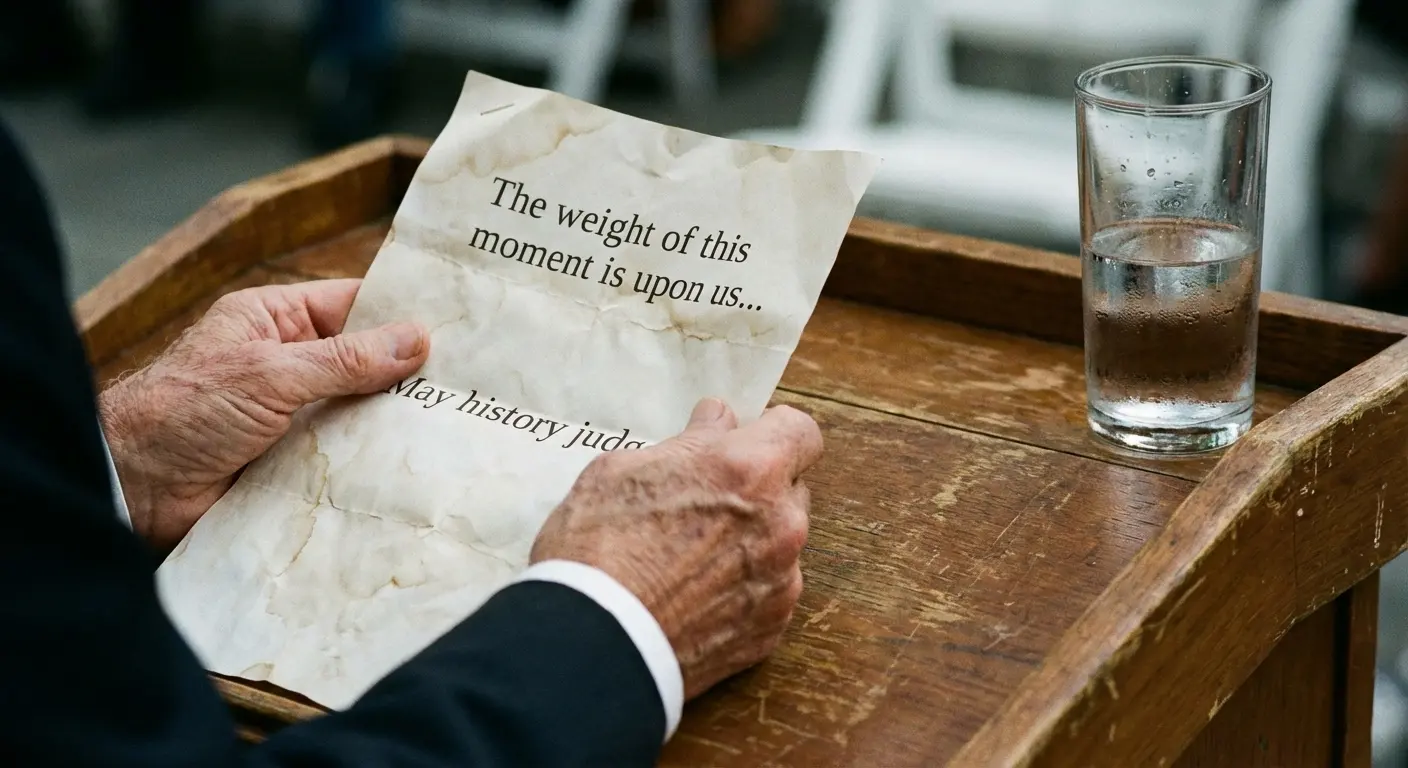 The weight of this
moment is upon us...
May history judg